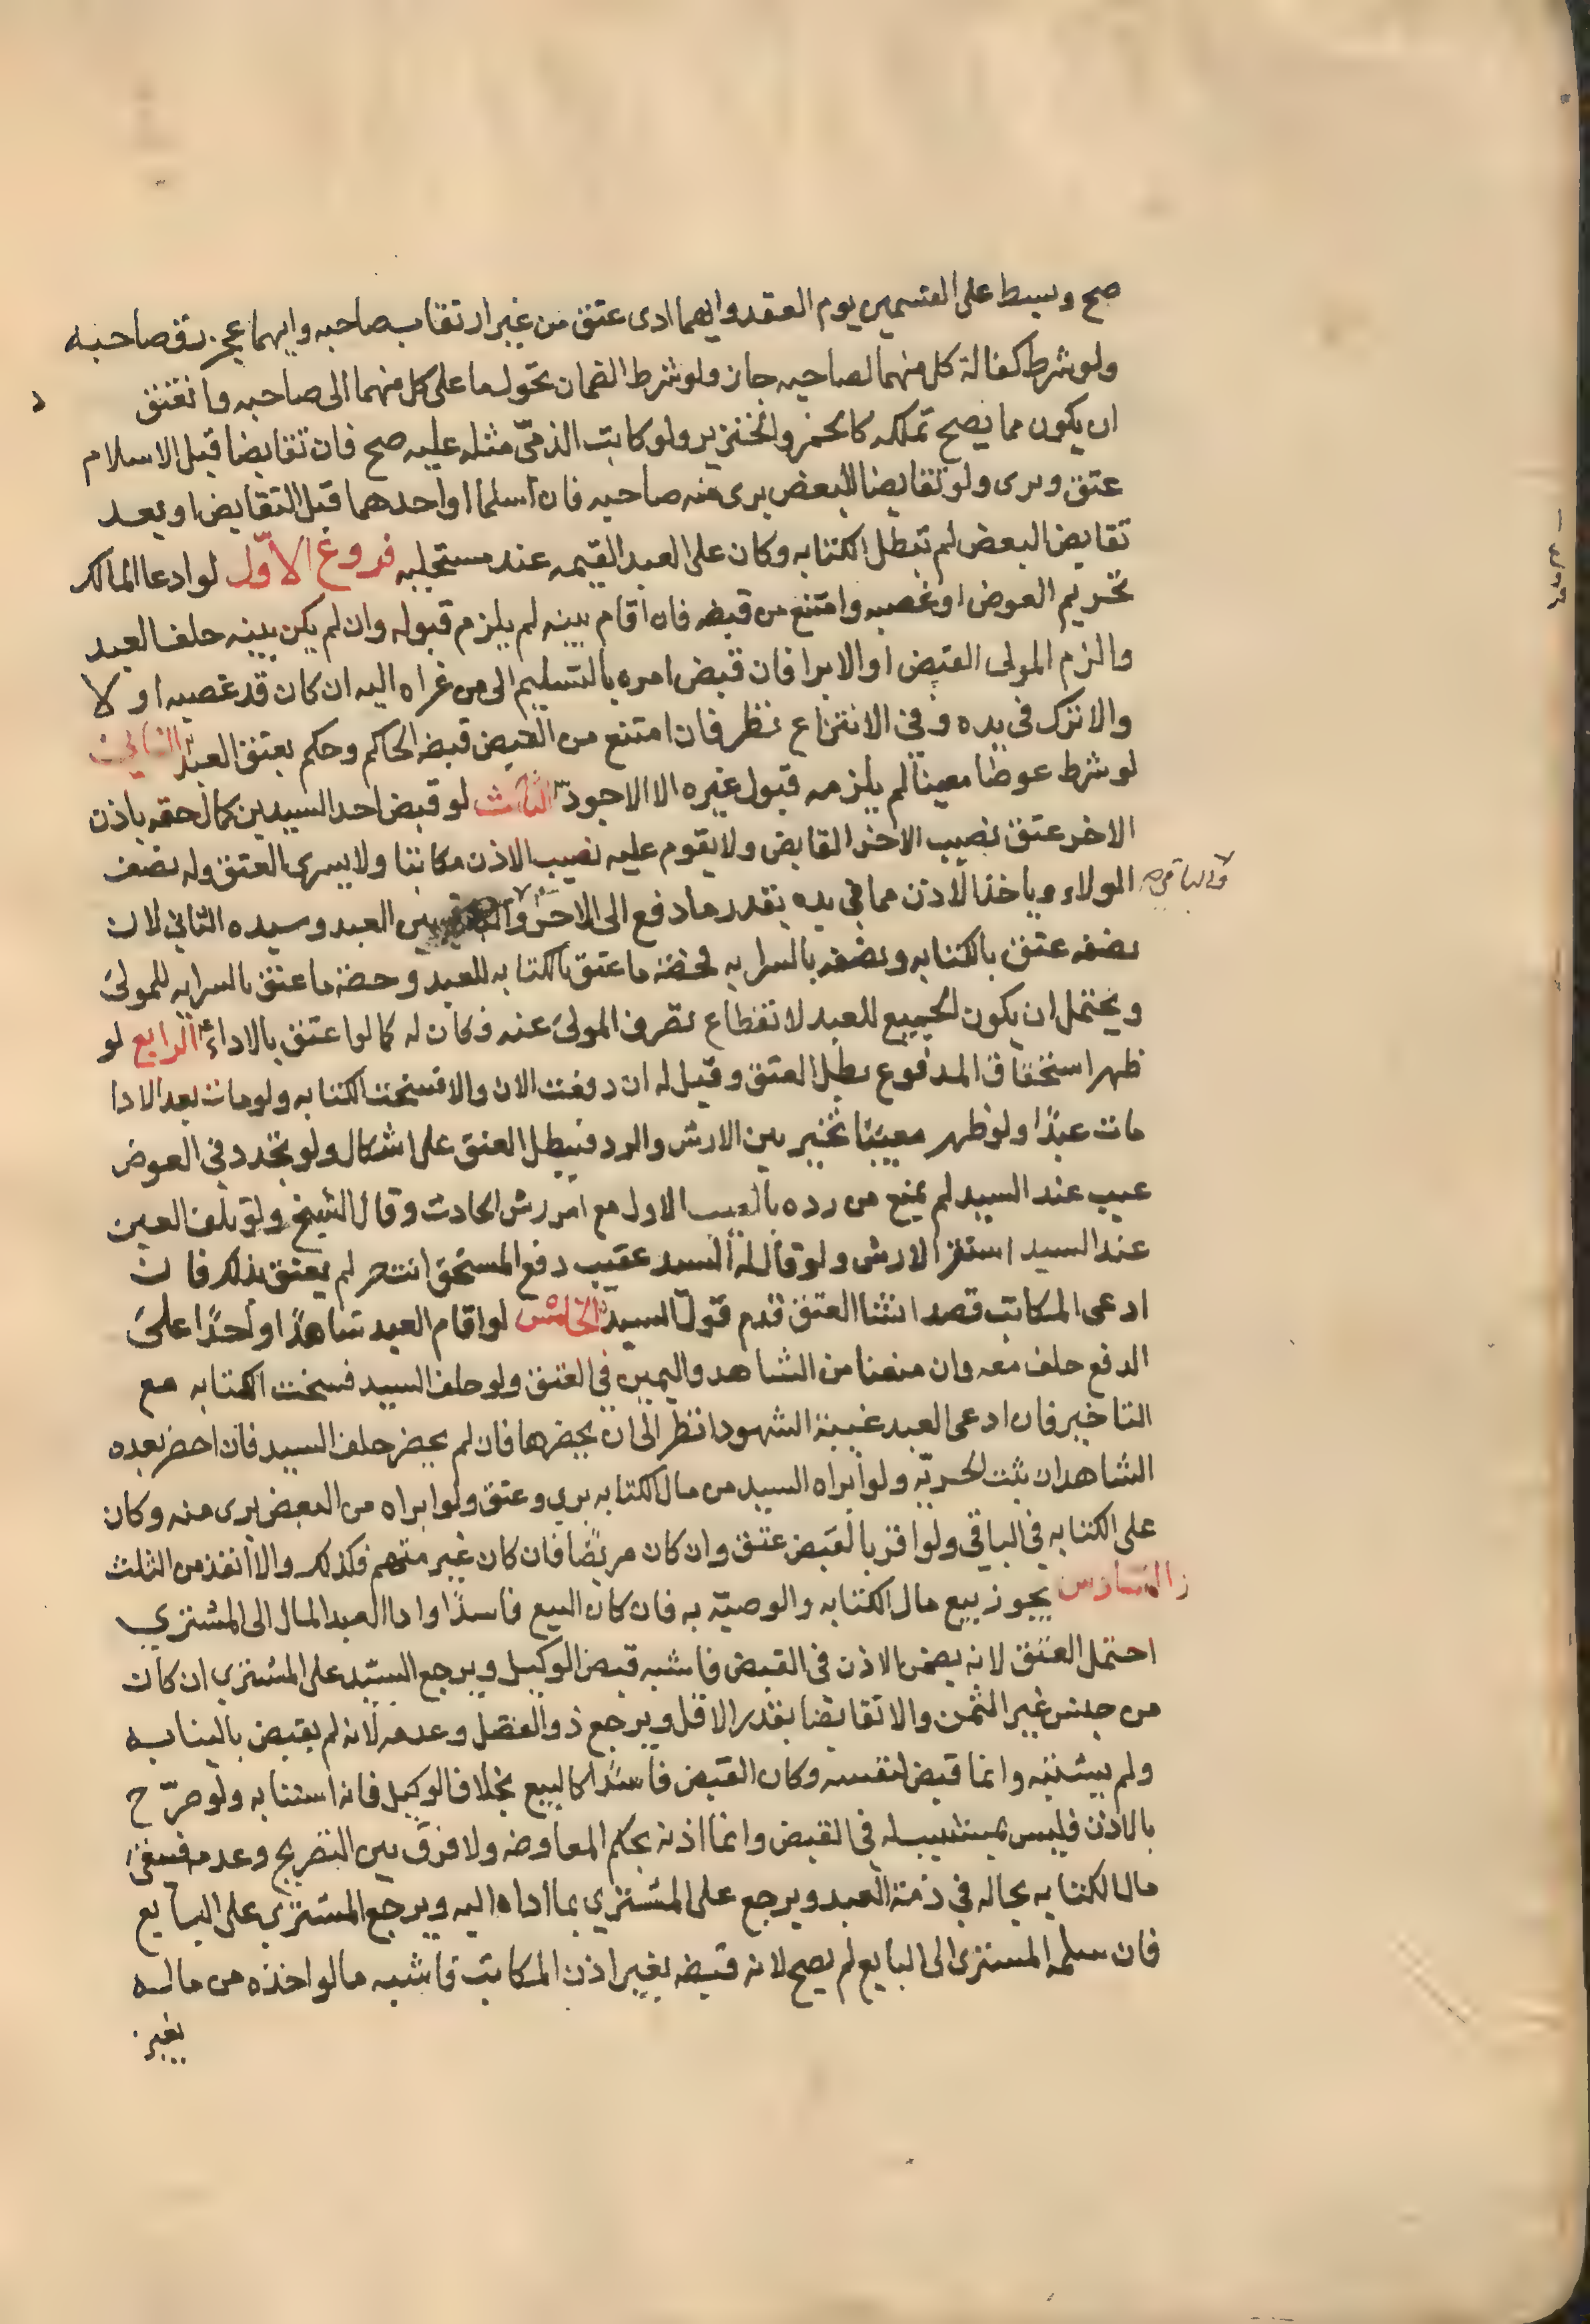 صح وبسط على القسمين يوم العقد وايهما ادى عتق من غير ارتقاب صاحبه وايهما عجز رق صاحبه
ولو شرط كفالة كل منهما لصاحبه جاز ولو شرط الضمان تحول ما على كل منهما الى صاحبه وانعتق
ان يكون مما يصح تملكه كالخمر والخنزير ولو كاتب الذمى مثله عليه صح فان تقابضا قبل الاسلام
عتق وبرى ولو تقابضا البعض برى منه صاحبه فان اسلما او احدهما قبل التقابض او بعد
تقابض البعض لم تبطل الكتابه وكان على العبد القيمه عند مستحليه فروع الاول لو ادعا المالك
تحريم العوض او غصبه وامتنع من قبضه فان اقام بينه لم يلزم قبوله وان لم يكن بينه حلف العبد
والزم المولى القبض او الابرا فان قبض امره بالتسليم الى من عزاه اليه ان كان قد غصبه او لا
والا ترك فى يده وفى الانتزاع نظر فان امتنع من القبض قبضه الحاكم وحكم بعتق العبد الثانى
لو شرط عوضا معينا لم يلزمه قبول غيره الا الاجود الثالث لو قبض احد السيدين كمال حقه باذن
الاخر عتق نصيب الاخر القابض ولا يقوم عليه نصيب الاذن مكاتبا ولا يسرى العتق وله نصف
الولاء وياخذ الاذن مما فى يده بقدر ما دفع الى الاخر بين العبد وسيده الثانى لان
نصفه عتق بالكتابه ونصفه بالسرايه فحصة ما عتق بالكتابه للعبد وحصة ما عتق بالسرايه للمولى
ويحتمل ان يكون الجميع للعبد لانقطاع تصرف المولى عنه فكان له كما لو عتق بالاداء الرابع لو
ظهر استحقاق المدفوع بطل العتق وقيل له ان دفعت الان والا فسخت الكتابه ولو مات بعد الادا
مات عبدا ولو ظهر معيبا تخير بين الارش والرد فيبطل العتق على اشكال ولو تجدد فى العوض
عيب عند السيد لم يمنع من رده بالعيب الاول مع ارش الحادث وقال الشيخ ولو تلف العين
عند السيد استقر الارش ولو قال له السيد عقيب دفع المستحق انت حر لم يعتق بذلك فان
ادعى المكاتب قصد انشا العتق قدم قول السيد الخامس لو اقام العبد شاهدا واحدا على
الدفع حلف معه وان منعنا من الشاهد واليمين فى العتق ولو حلف السيد فسخت الكتابه مع
التاخير فان ادعى العبد غيبة الشهود انظر الى ان يحضرها فان لم يحضر حلف السيد فان احضر بعده
الشاهدان ثبت الحريه ولو ابراه السيد من مال الكتابه برى وعتق ولو ابراه من البعض برى منه وكان
على الكتابه فى الباقى ولو اقر بالقبض عتق وان كان مريضا فان كان غير متهم فكذلك والا نفذ من الثلث
السادس يجوز بيع مال الكتابه والوصيه به فان كان البيع فاسدا وادا العبد المال الى المشترى
احتمل العتق لانه يضمن الاذن فى القبض فاشبه قبض الوكيل ويرجع السيد على المشترى ان كان
من جنس غير الثمن والا تقاصا بقدر الاقل ويرجع ذو الفضل وعدمه لانه لم يقبض بالنيابه
ولم يستنبه وانما قبض لنفسه وكان القبض فاسدا كالبيع بخلاف الوكيل فانه استنابه ولو صرح
بالاذن فليس بمستنيب له فى القبض وانما اذنه بحكم المعاوضه ولا فرق بين التصريح وعدمه فيبقى
مال الكتابه بحاله فى ذمة العبد ويرجع على المشترى بما اداه اليه ويرجع المشترى على البايع
فان سلمه المشترى الى البايع لم يصح لانه قبضه بغير اذن المكاتب فاشبه ما لو اخذه من ماله
بغير